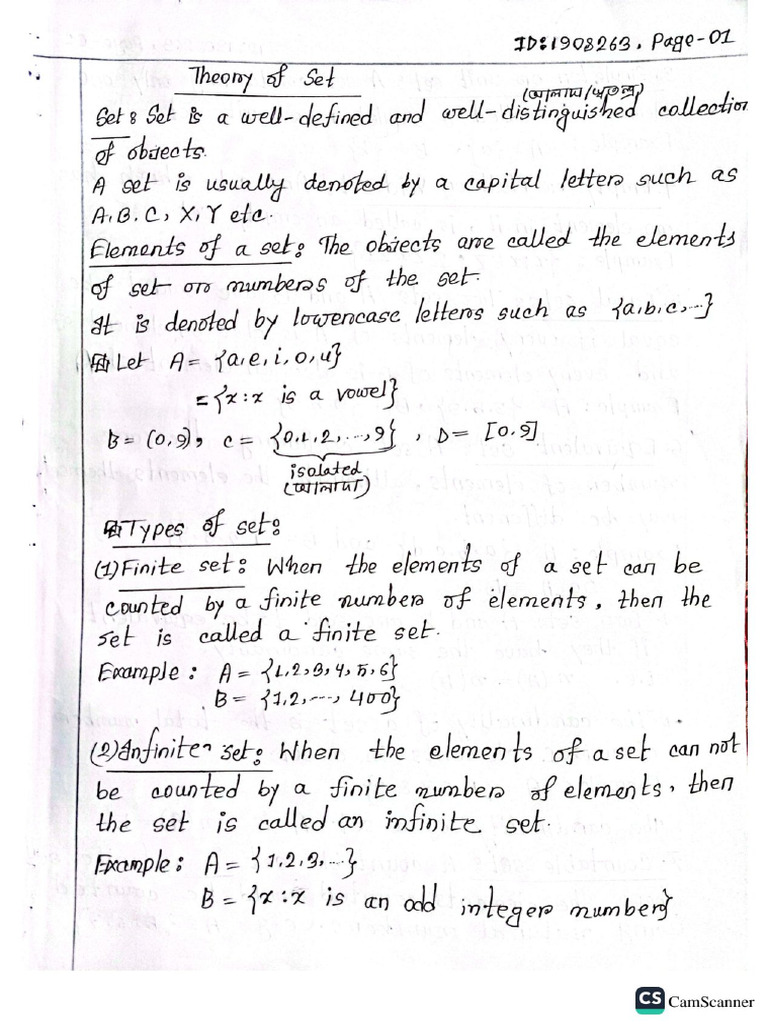 ID:1908263, Page-01
Theory of Set
(আলাদা/স্বতন্ত্র)
Set: Set is a well-defined and well-distinguished collection
of objects.
A set is usually denoted by a capital letter such as
A, B, C, X, Y etc.
Elements of a set: The objects are called the elements
of set or numbers of the set.
It is denoted by lowercase letters such as {a,b,c,...}
Let A = {a,e,i,o,u}
= {x:x is a vowel}
B = (0,9), C = {0,1,2,...,9}, D = [0,9]
isolated
(আলাদা)
Types of set:
(1) Finite set: When the elements of a set can be
counted by a finite number of elements, then the
set is called a finite set.
Example: A = {1,2,3,4,5,6}
B = {1,2,...., 400}
(2) Infinite set: When the elements of a set can not
be counted by a finite number of elements, then
the set is called an infinite set.
Example: A = {1,2,3,...}
B = {x:x is an odd integer number}
CS CamScanner